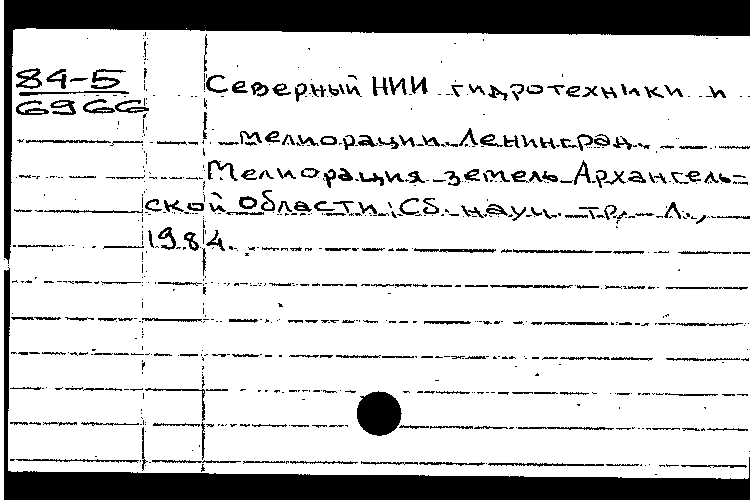 84-5
6966
Северный НИИ гидротехники и
мелиорации. Ленинград.
Мелиорация земель Архангель=
ской области: Сб. науч. тр. – Л.,
1984.